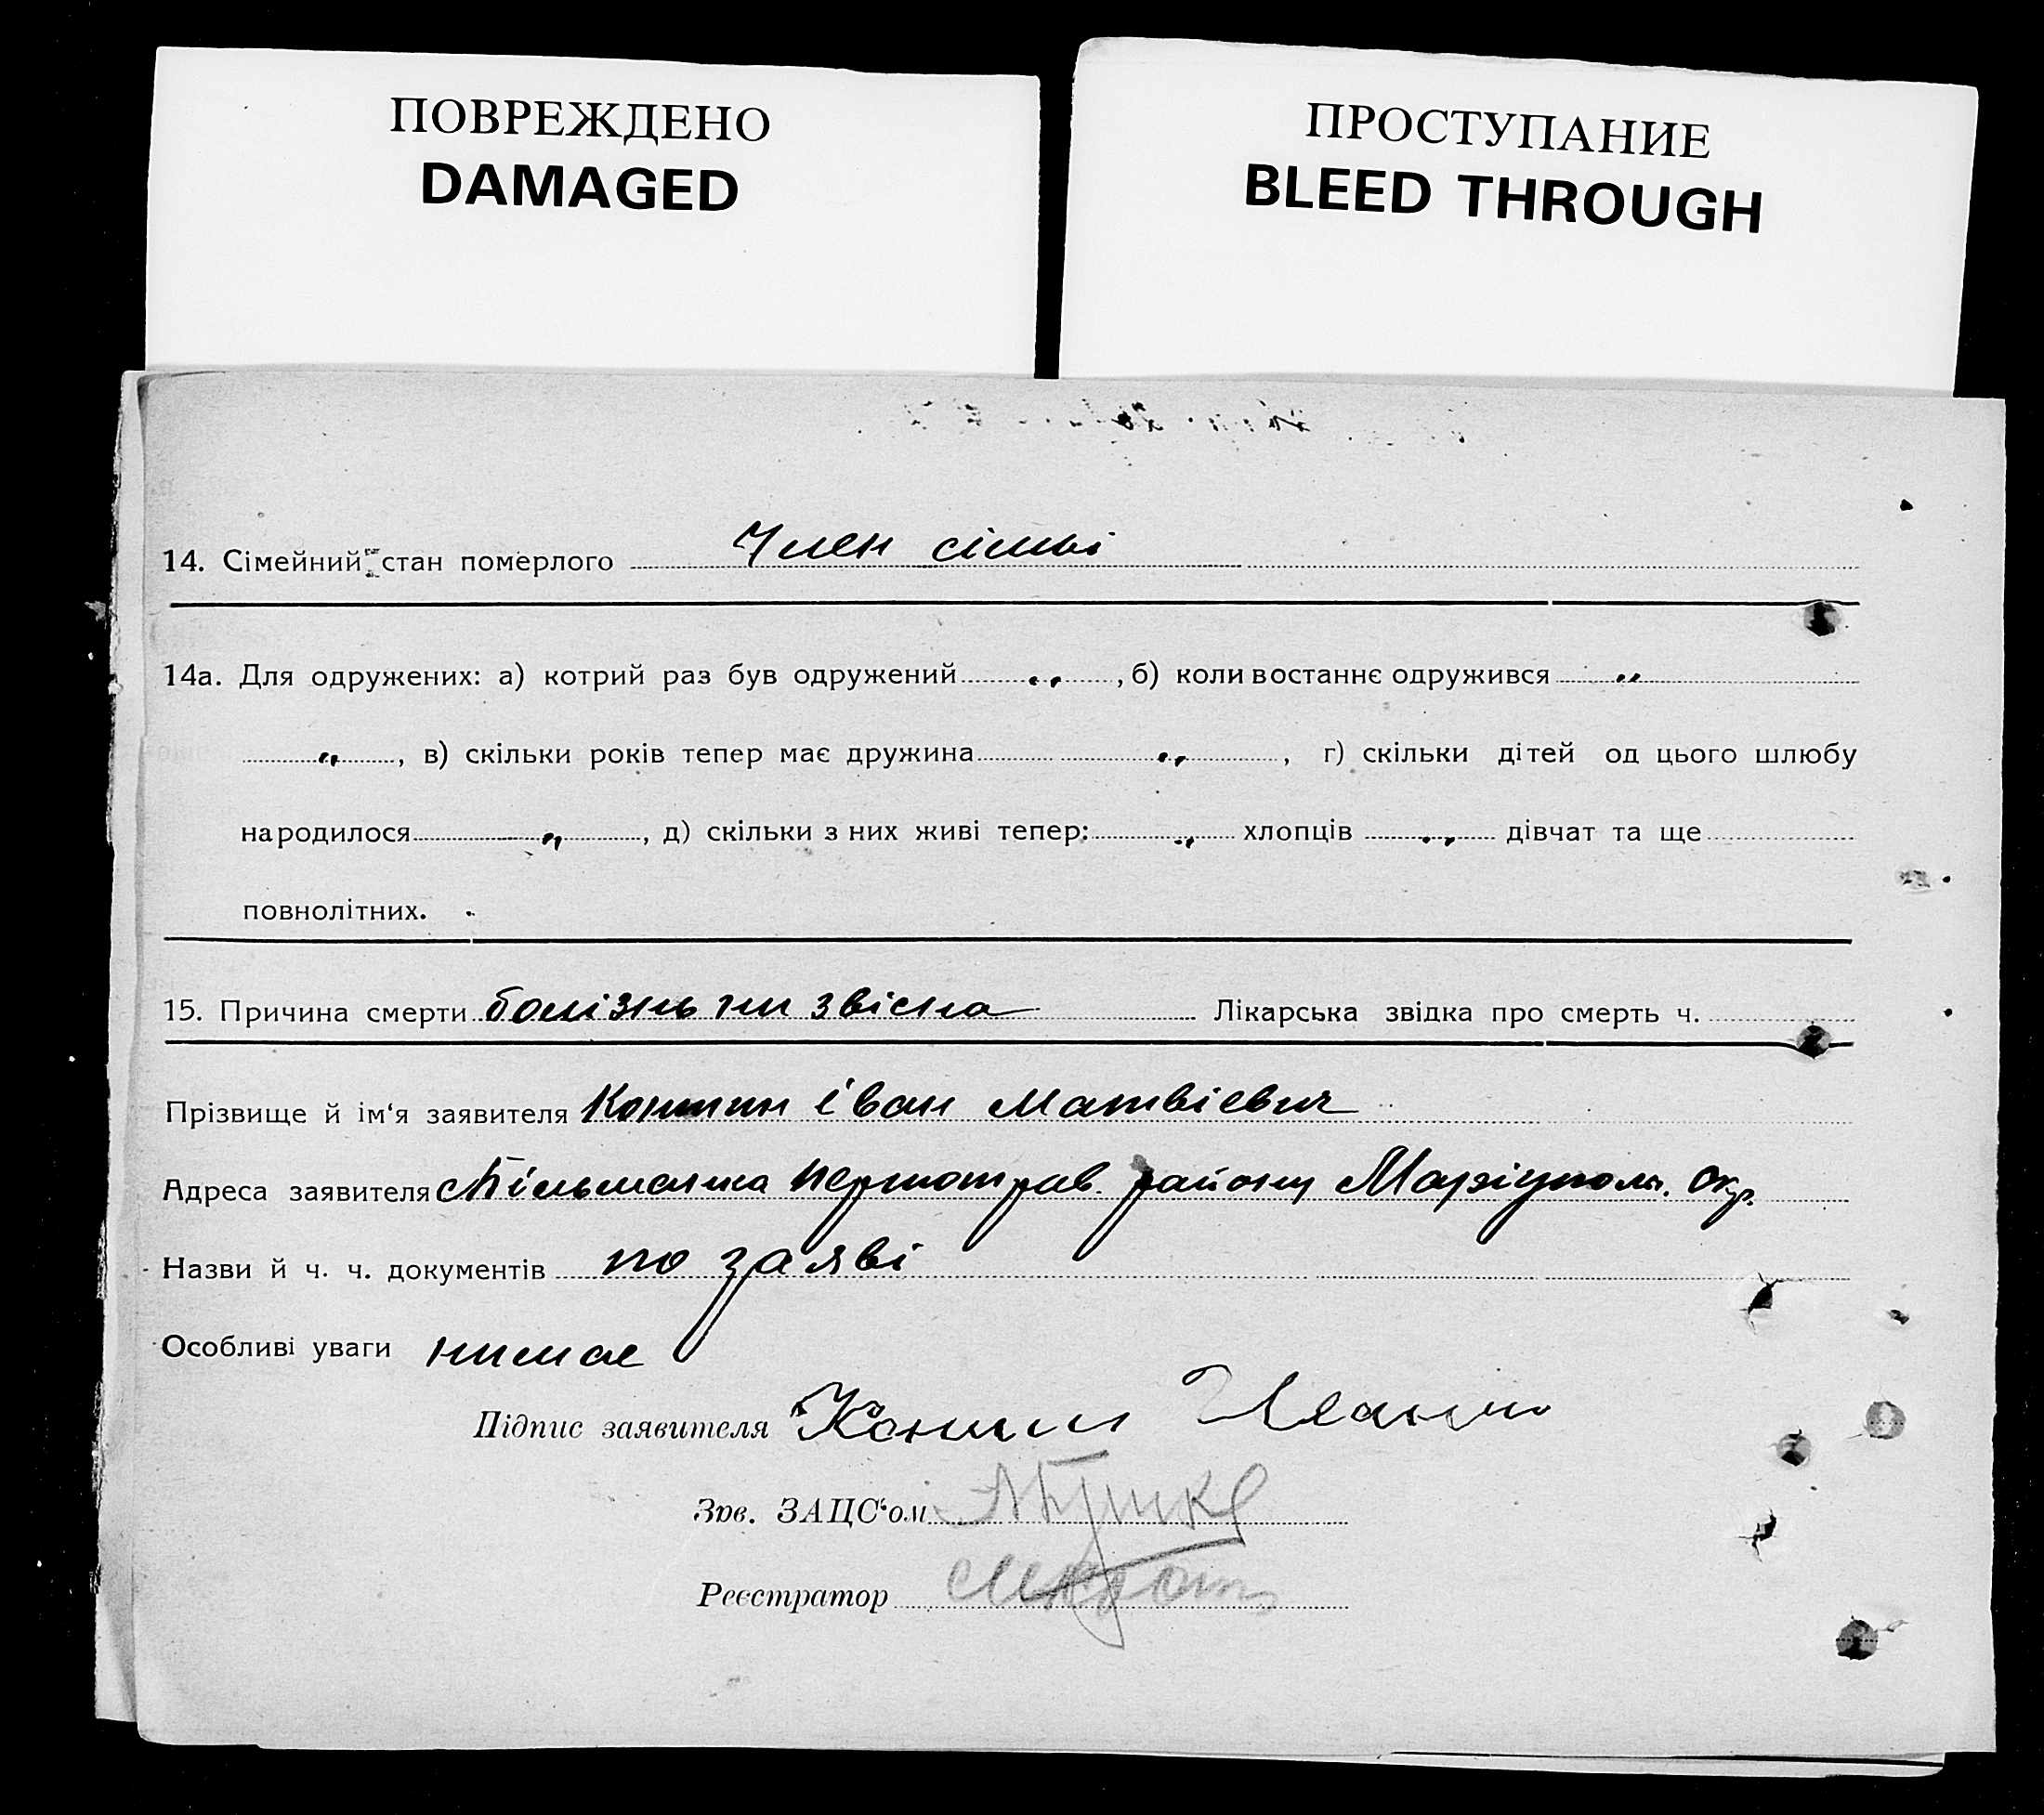 ПОВРЕЖДЕНО
DAMAGED
ПРОСТУПАНИЕ
BLEED THROUGH
14. Сімейний стан померлого Член сімьї
14а. Для одружених: а) котрий раз був одружений „ , б) коли востаннє одружився „
„ , в) скільки років тепер має дружина „ , г) скільки дітей од цього шлюбу
народилося „ , д) скільки з них живі тепер: „ хлопців „ дівчат та ще
повнолітних.
15. Причина смерти болізнь ни звісна Лікарська звідка про смерть ч.
Прізвище й ім'я заявителя іван Матвієвич
Адреса заявителя с Більманка Першотрав. району Маріуполь. Окр.
Назви й ч. ч. документів по заяві
Особливі уваги нимає
Підпис заявителя
Зав. ЗАЦС'ом
Реєстратор